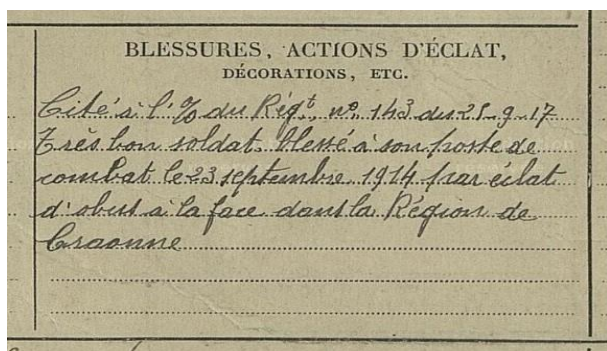 BLESSURES, ACTIONS D'ÉCLAT,
DÉCORATIONS, ETC.
Cité à l'% du Régt, nº 143 du 25-9-17
Très bon soldat blessé à son poste de
combat le 23 septembre 1914 par éclat
d'obus à la face dans la Région de
Craonne